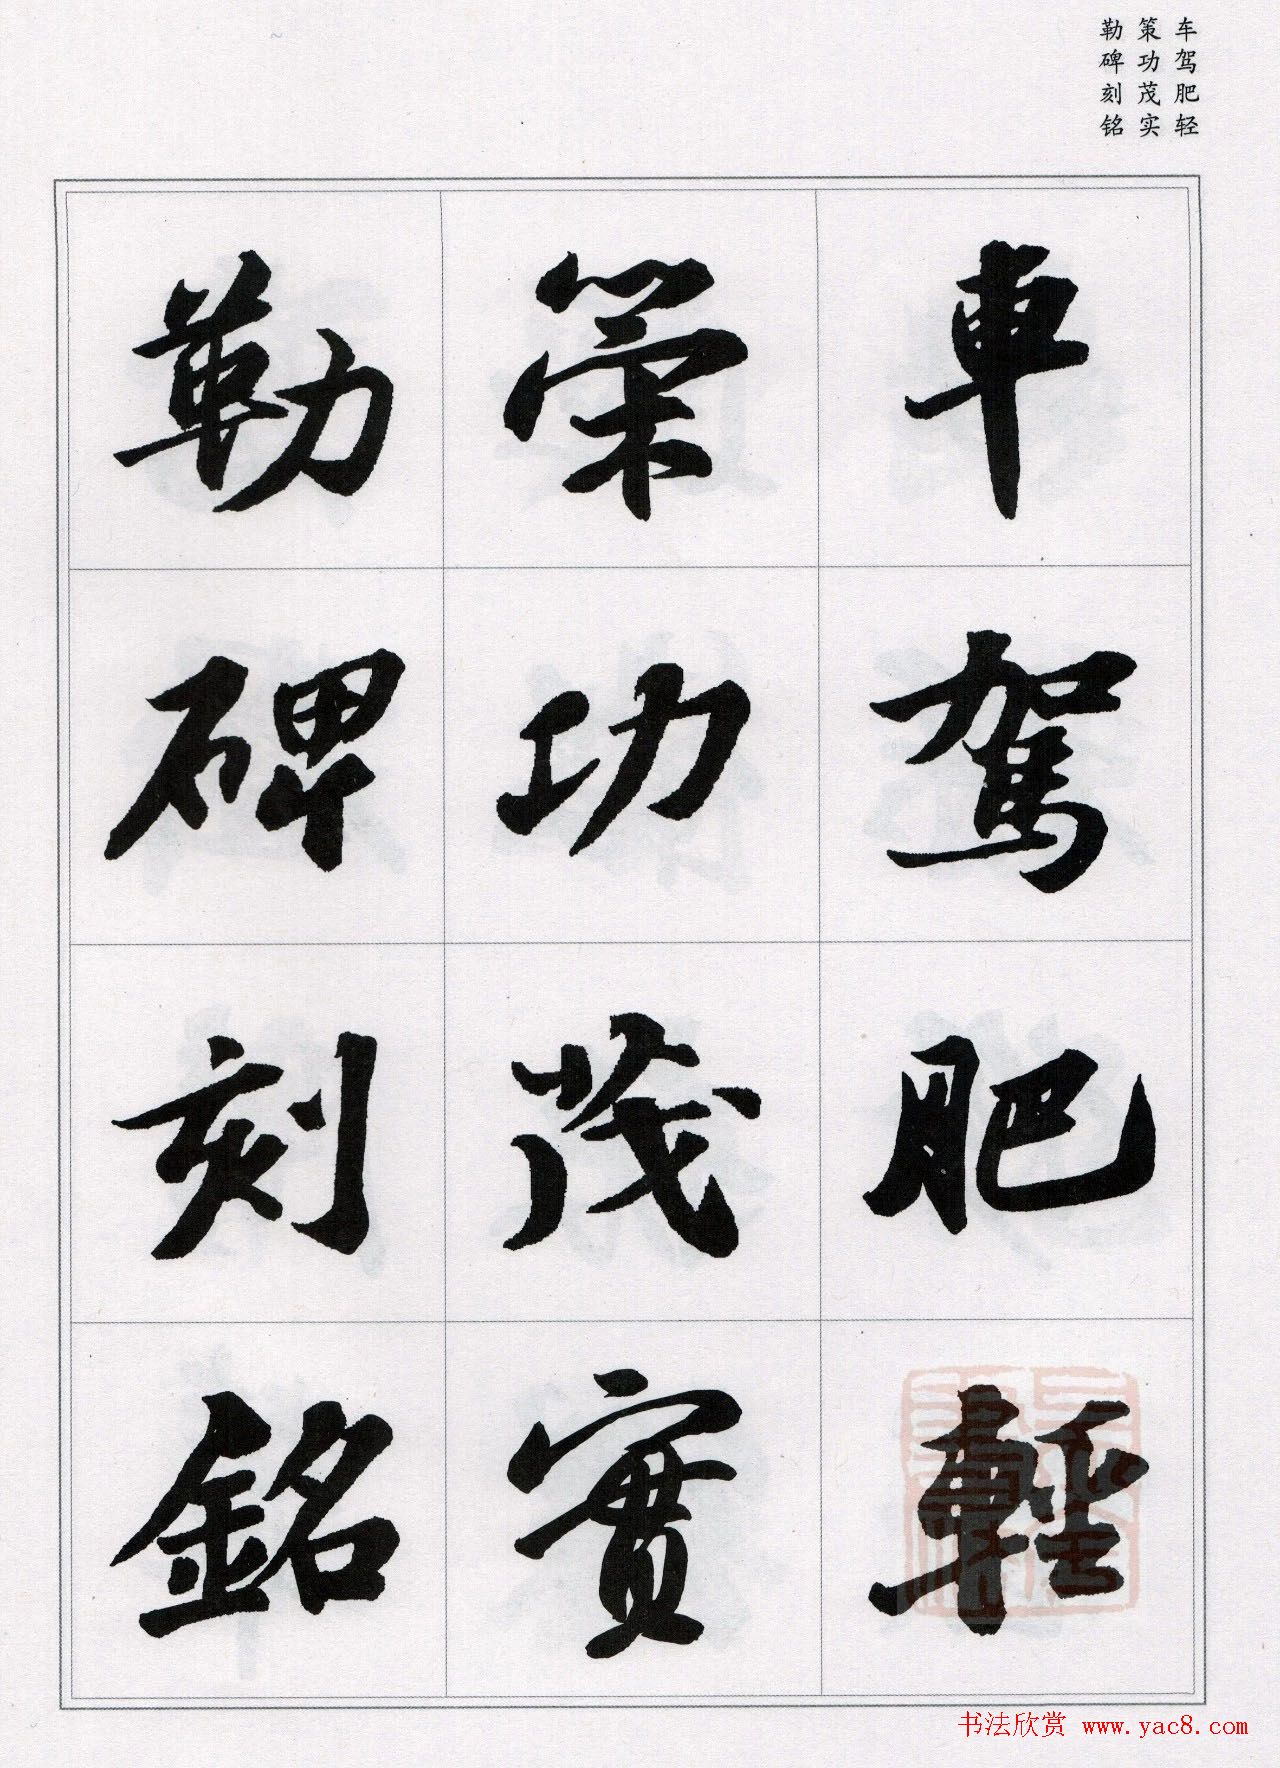 车驾肥轻
策功茂实
勒碑刻铭
車駕肥輕
策功茂實
勒碑刻銘
书法欣赏 www.yac8.com